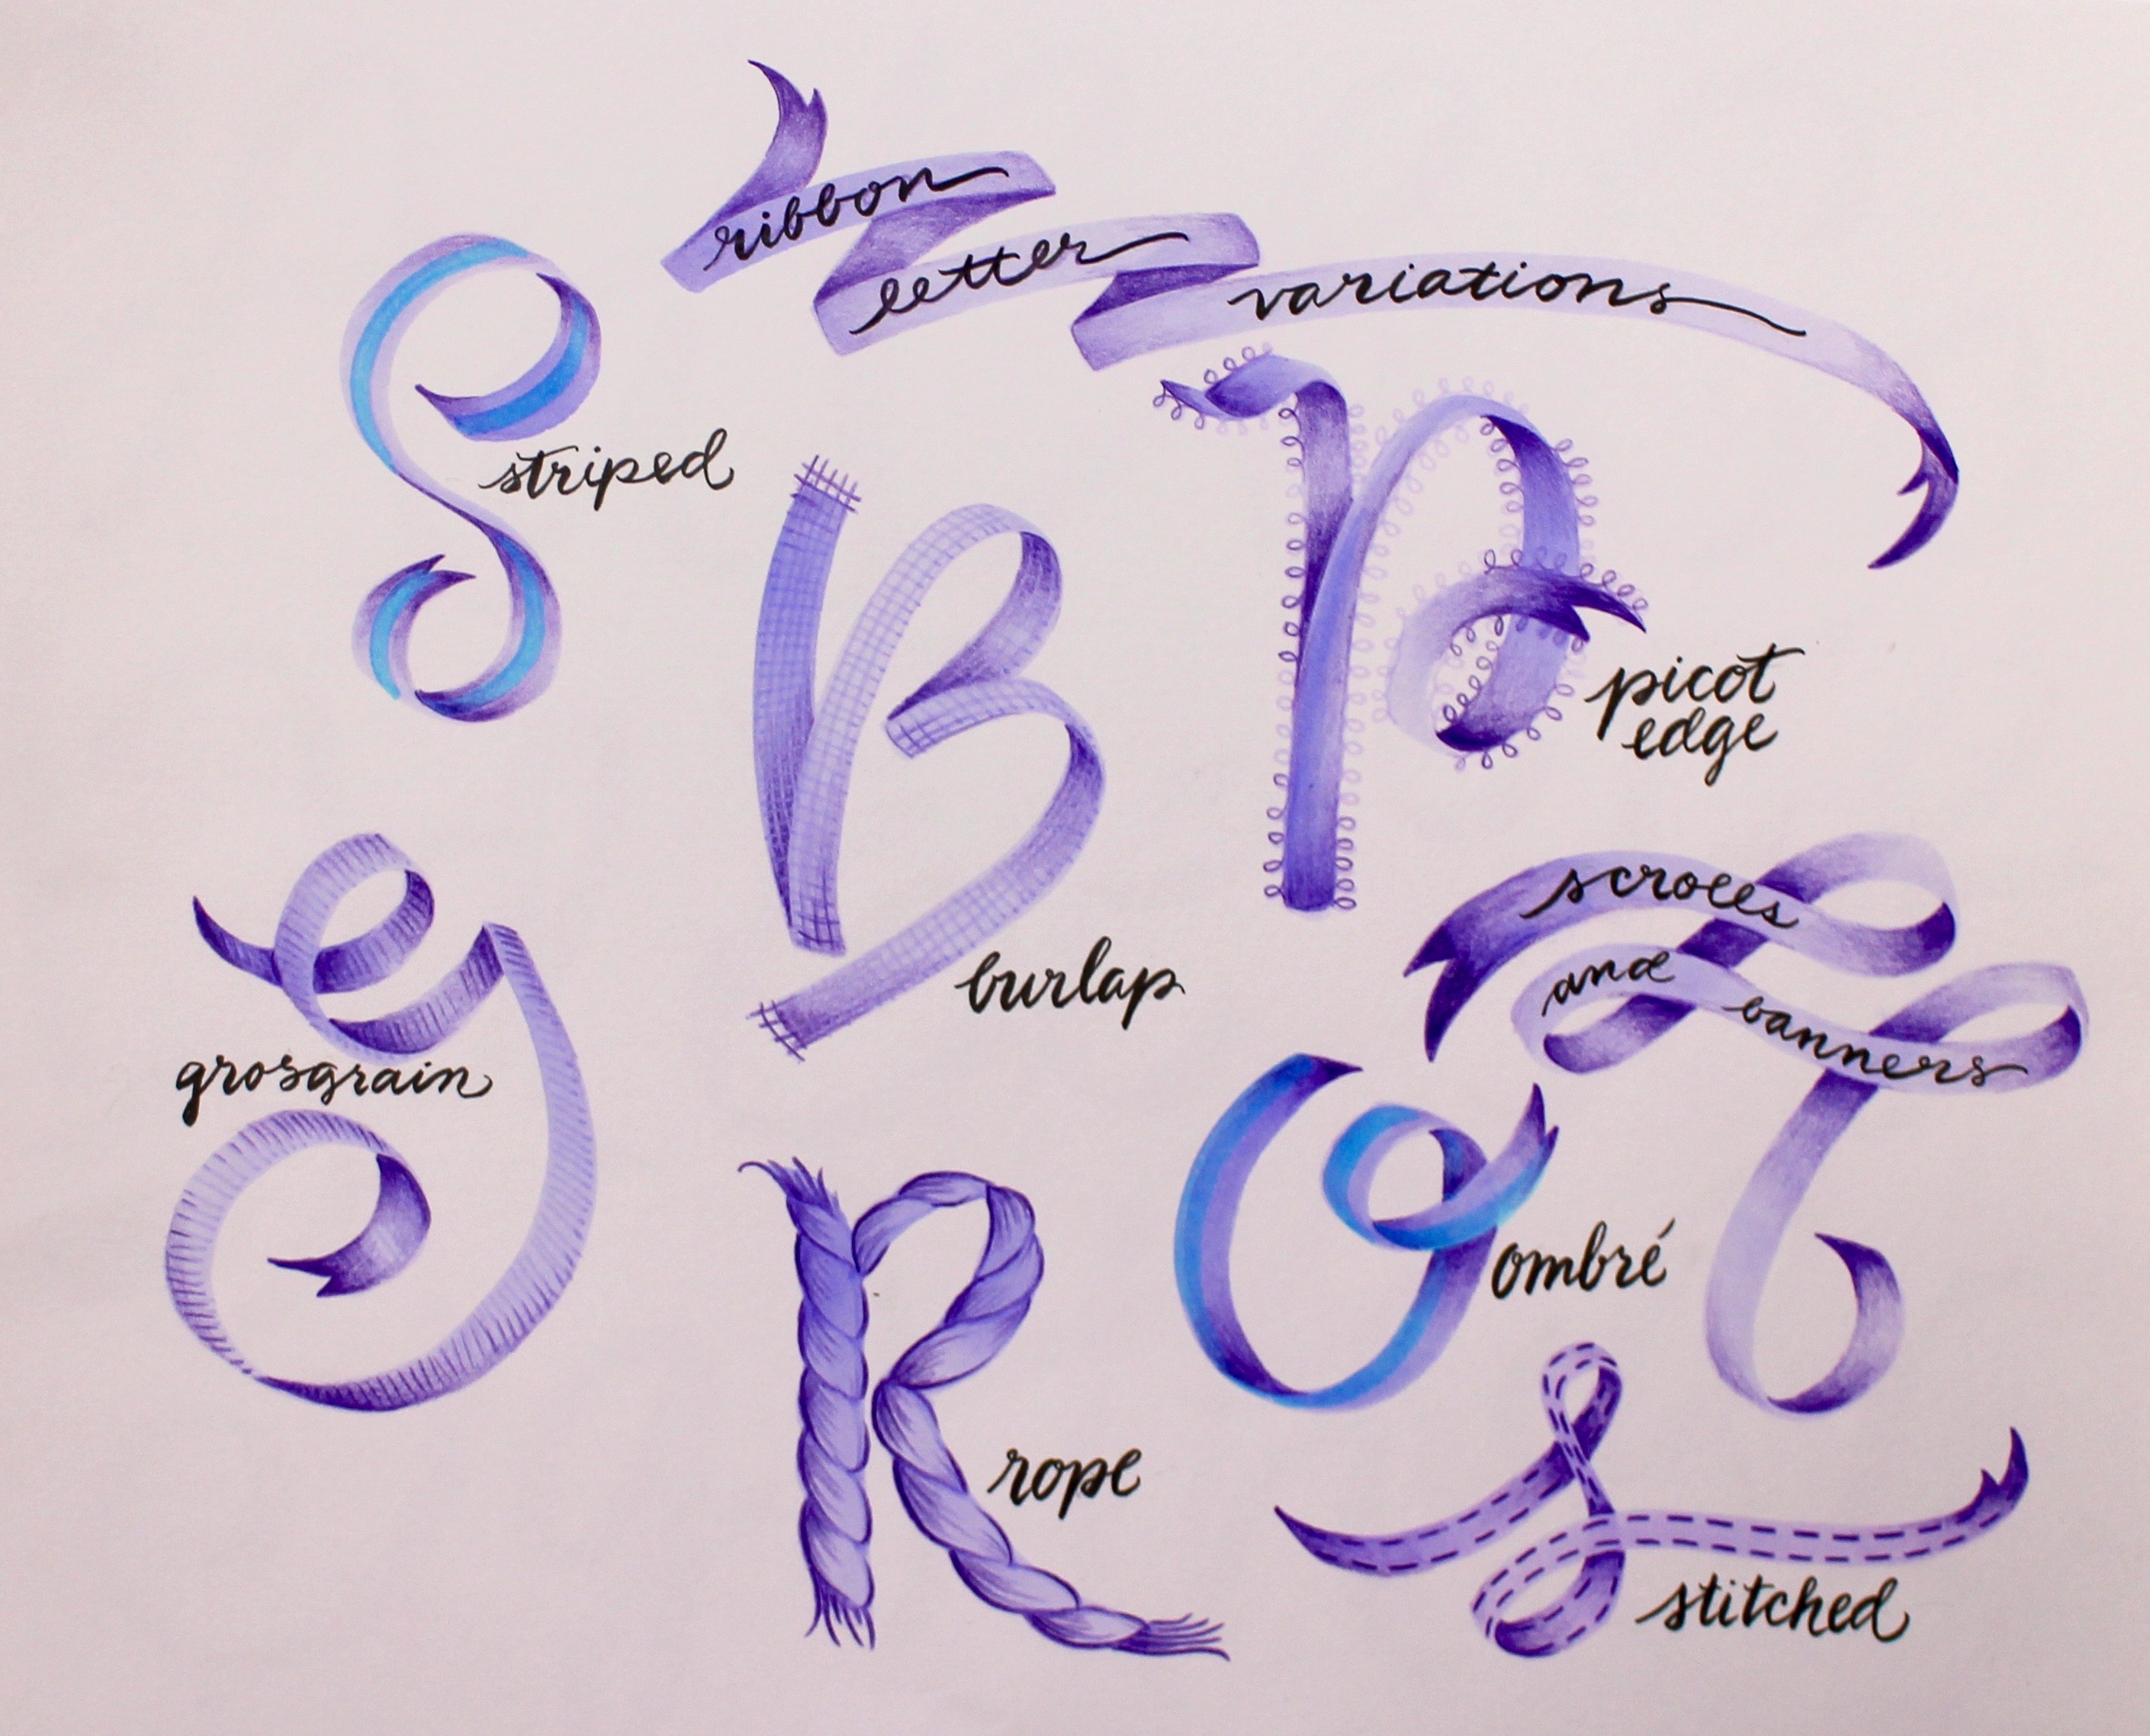 ribbon
letter
variations
S
striped
B
burlap
P
picot
edge
G
grosgrain
scrolls
and banners
T
O
ombré
R
rope
S
stitched